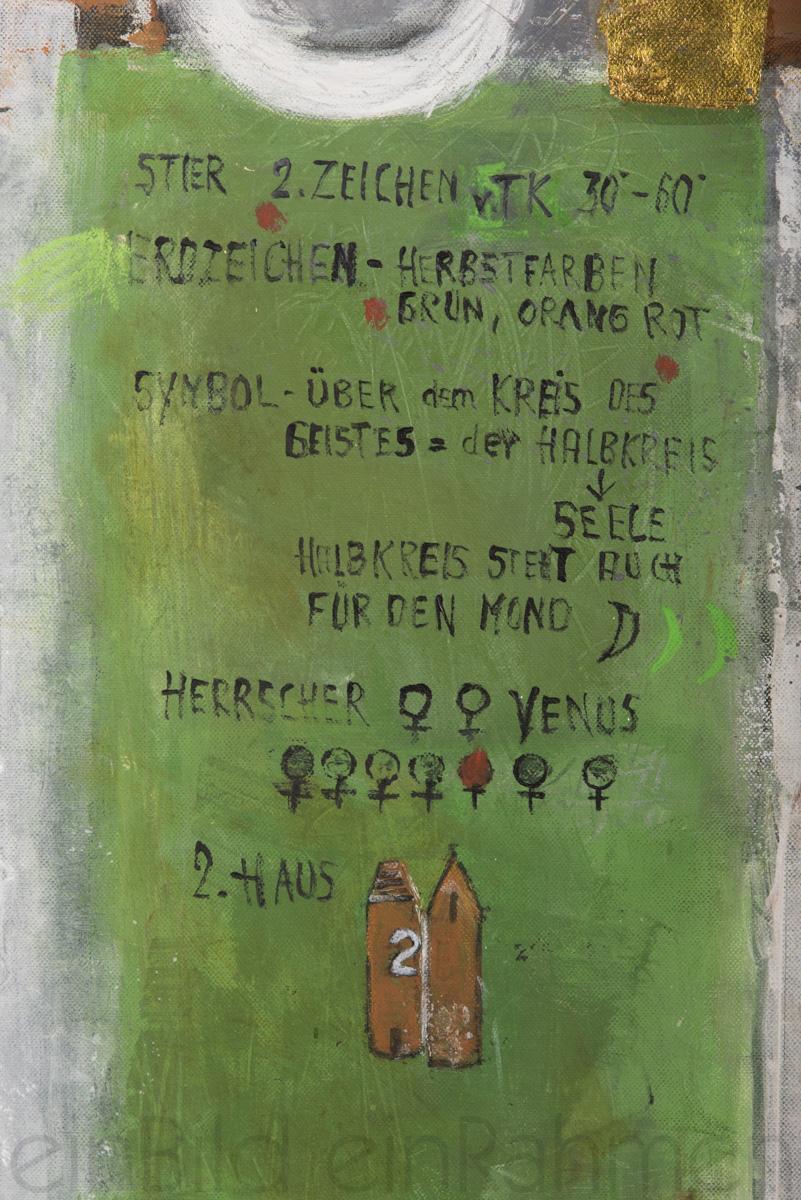 STIER 2. ZEICHEN v. TK 30°-60°
ERDZEICHEN - HERBSTFARBEN
GRÜN, ORANG ROT
SYMBOL - ÜBER dem KREIS DES
GEISTES = der HALBKREIS
↓
SEELE
HALBKREIS STEHT AUCH
FÜR DEN MOND
HERRSCHER ♀ ♀ VENUS
♀ ♀ ♀ ♀ ♀ ♀ ♀
2. HAUS
2
einBild einRahmen